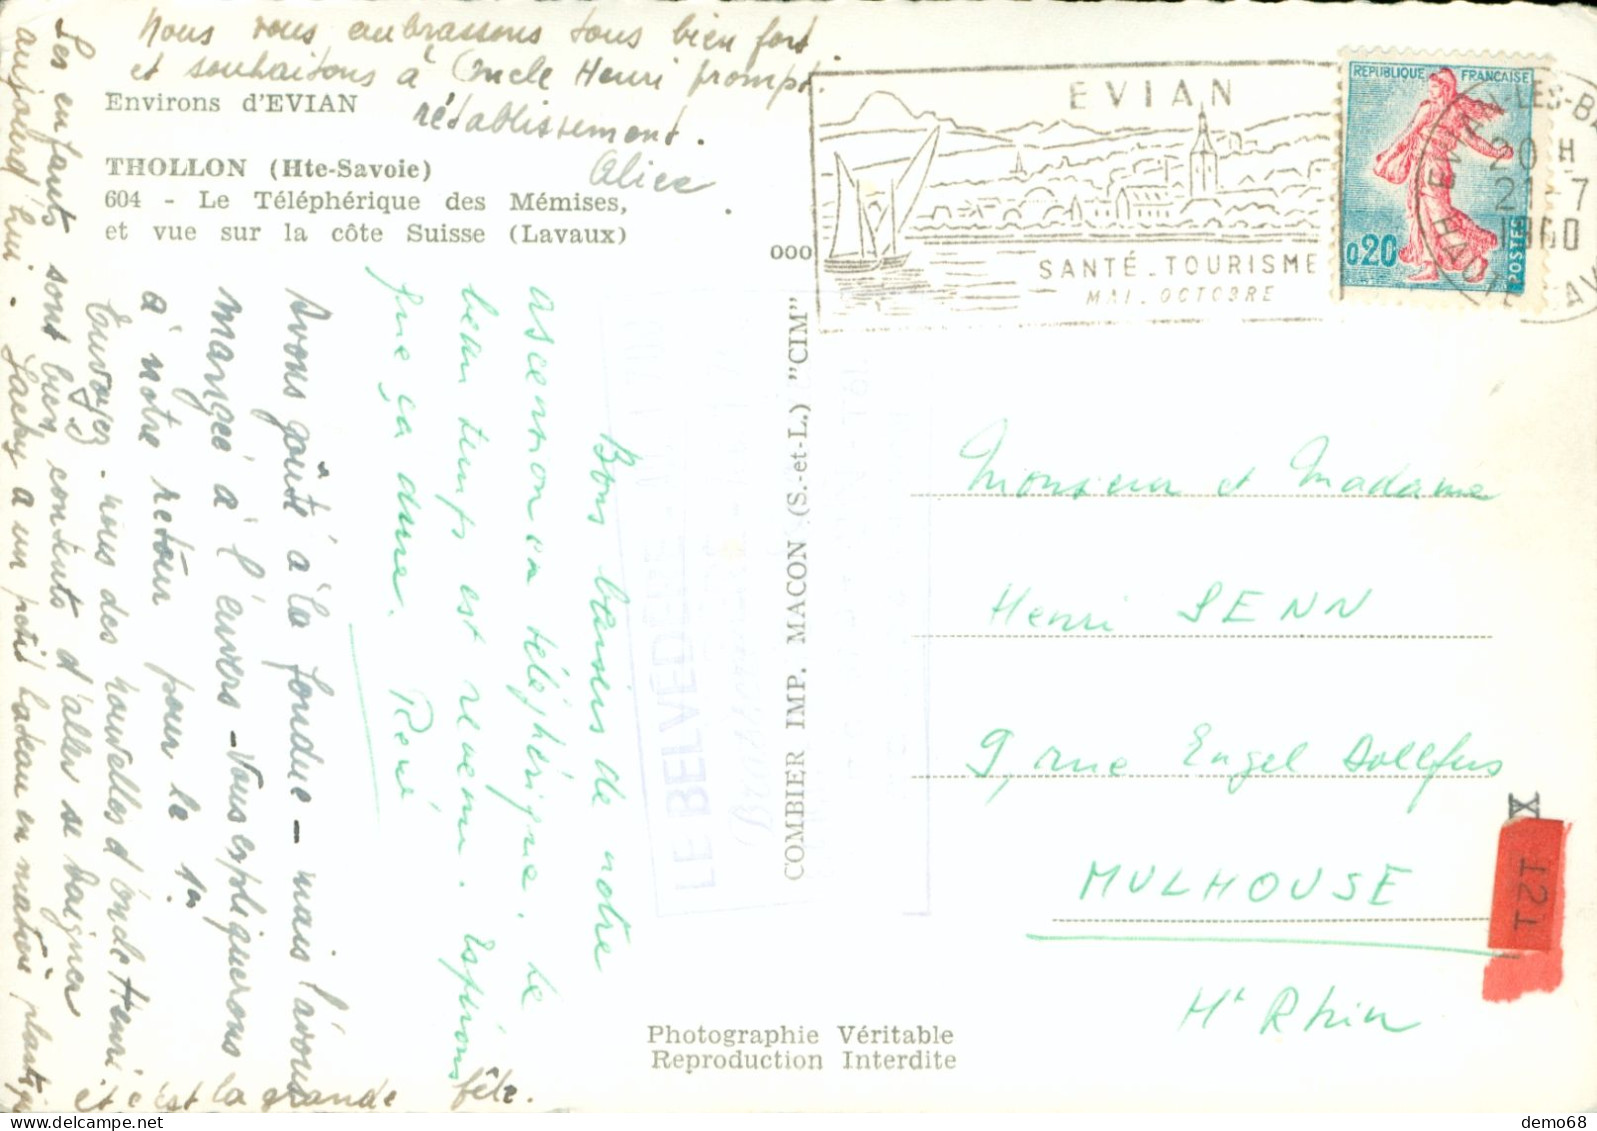 Nous vous embrassons tous bien fort
et souhaitons à Oncle Henri prompt
rétablissement.
Alice
Environs d'EVIAN
THOLLON (Hte-Savoie)
604 - Le Téléphérique des Mémises,
et vue sur la côte Suisse (Lavaux)
Bons baisers de notre
ascension en téléphérique. Le
beau temps est revenu. Espérons
que ça dure. René
Avons goûté à la fondue - mais l'avons
mangée à l'envers - Vous expliquerons
à notre retour pour le 1er
Envoyez-nous des nouvelles d'Oncle Henri.
Les enfants sont bien contents d'aller se baigner
aujourd'hui. Jacky a un petit bateau en matière plastique
et c'est la grande fête.
000
COMBIER IMP. MACON (S.-et-L.) "CIM"
Photographie Véritable
Reproduction Interdite
EVIAN
SANTÉ - TOURISME
MAI - OCTOBRE
REPUBLIQUE FRANCAISE
0,20
POSTES
20 H
21 - 7
1960
LE BELVEDERE
Monsieur et Madame
Henri SENN
9, rue Engel Dollfus
MULHOUSE
Ht Rhin
121
demo68